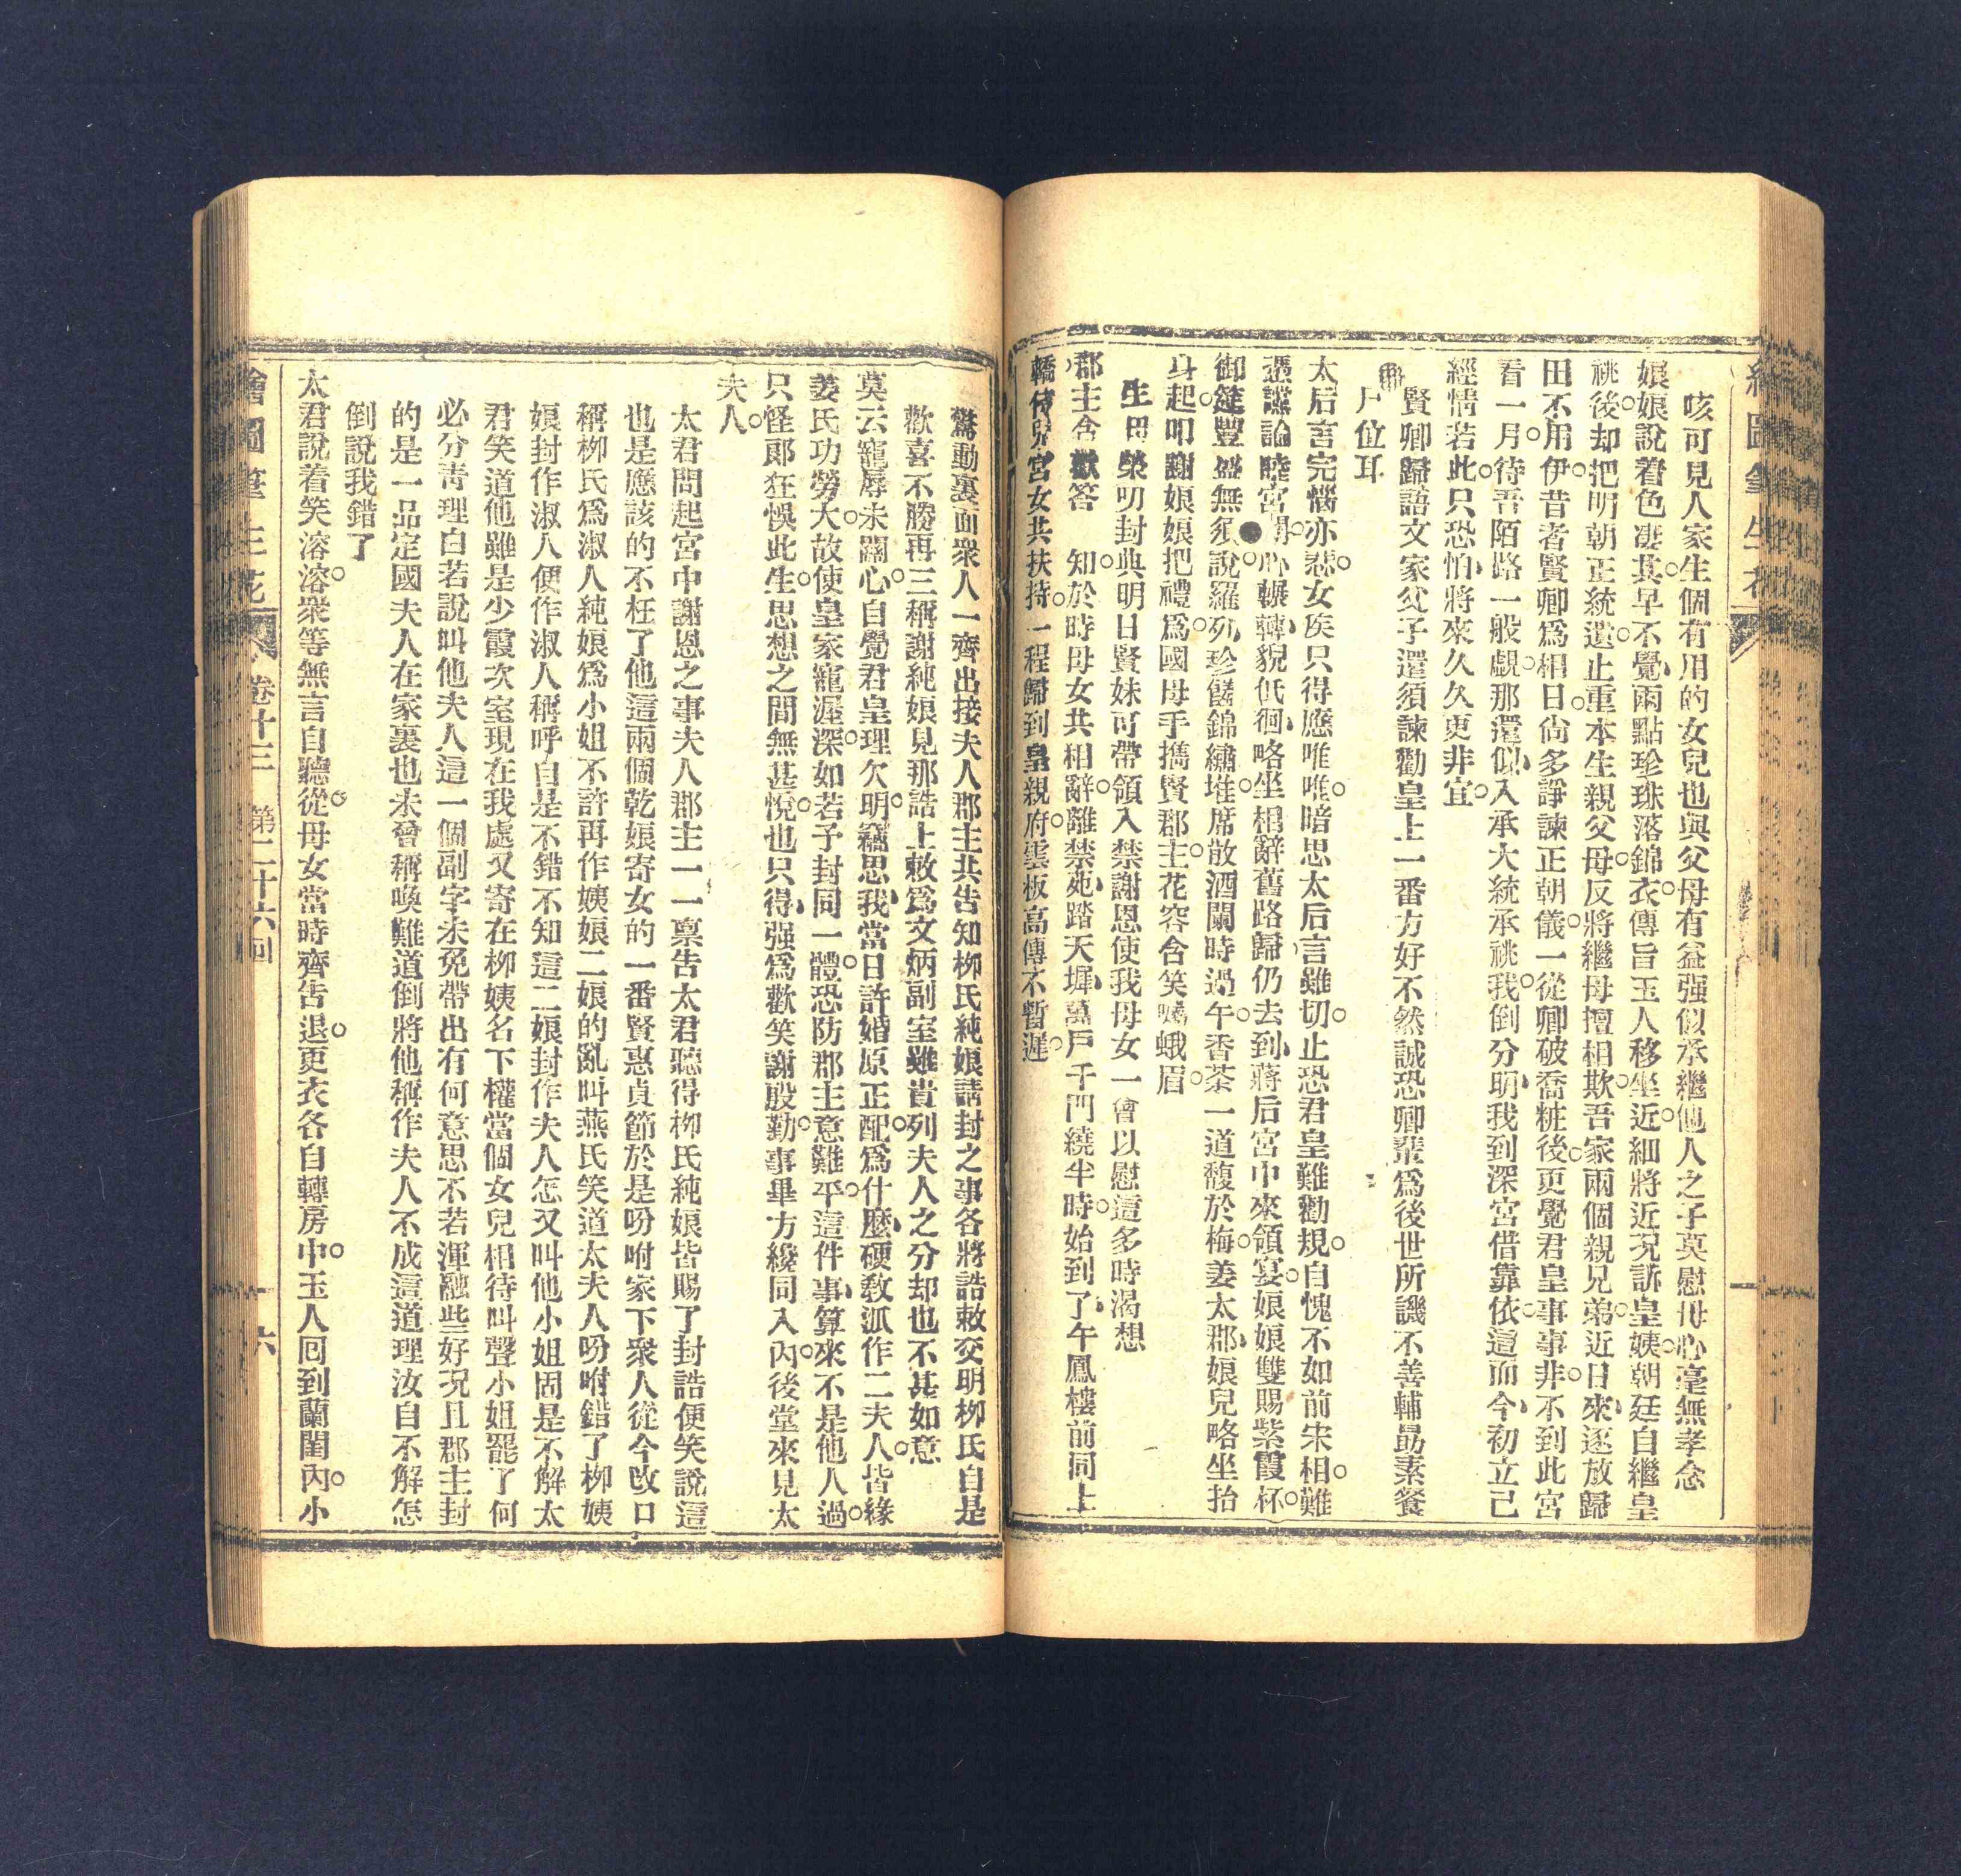 繪圖筆生花
咳可見人家生個有用的女兒也與父母有益强似承繼他人之子莫慰母心毫無孝念
娘娘說着色凄其早不覺兩點珍珠落錦衣傳旨玉人移坐近細將近况訴皇姨朝廷自繼皇
祧後却把明朝正統遺止重本生親父母反將繼母擅相欺吾家兩個親兄弟近日來逐放歸
田不用伊昔者賢卿爲相日尙多諍諫正朝儀一從卿破喬粧後更覺君皇事事非不到此宮
看一月待吾陌路一般覷那還似入承大統承祧我倒分明我到深宮借靠依這而今初立己
經情若此只恐怕將來久久更非宜
賢卿歸語文家父子還須諫勸皇上一番方好不然誠恐卿輩爲後世所譏不善輔勗素餐
尸位耳
太后言完惱亦悲女矦只得應唯唯暗思太后言雖切止恐君皇難勸規自愧不如前宋相難
憑讜論睦宮闈心輾轉貌低徊略坐相辭舊路歸仍去到蔣后宮中來領宴娘娘雙賜紫霞杯
御筵豐盛無須說羅列珍饈錦繡堆席散酒闌時過午香茶一道馥於梅姜太郡娘兒略坐抬
身起叩謝娘娘把禮爲國母手攜賢郡主花容含笑囑蛾眉
生母榮叨封典明日賢妹可帶領入禁謝恩使我母女一會以慰這多時渴想
郡主含歡答 知於時母女共相辭離禁苑踏天墀萬戶千門繞半時始到了午鳳樓前同上
轎侍兒宮女共扶持一程歸到皇親府雲板高傳不暫遲
驚動裏面衆人一齊出接夫人郡主共告知柳氏純娘請封之事各將誥敕交明柳氏自是
歡喜不勝再三稱謝純娘見那誥上敕爲文炳副室雖貴列夫人之分却也不甚如意
莫云寵辱未關心自覺君皇理欠明竊思我當日許婚原正配爲什麽硬敎派作二夫人皆緣
姜氏功勞大故使皇家寵渥深如若予封同一體恐防郡主意難平這件事算來不是他人過
只怪郞狂悞此生思想之間無甚悅也只得强爲歡笑謝殷勤事畢方纔同入內後堂來見太
夫人
太君問起宮中謝恩之事夫人郡主一一禀告太君聽得柳氏純娘皆賜了封誥便笑說這
也是應該的不枉了他這兩個乾娘寄女的一番賢惠貞節於是吩咐家下衆人從今改口
稱柳氏爲淑人純娘爲小姐不許再作姨娘二娘的亂叫燕氏笑道太夫人吩咐錯了柳姨
娘封作淑人便作淑人稱呼自是不錯不知這二娘封作夫人怎又叫他小姐固是不解太
君笑道他雖是少霞次室現在我處又寄在柳姨名下權當個女兒相待叫聲小姐罷了何
必分靑理白若說叫他夫人這一個副字未免帶出有何意思不若渾融些好况且郡主封
的是一品定國夫人在家裏也未曾稱喚難道倒將他稱作夫人不成這道理汝自不解怎
倒說我錯了
太君說着笑溶溶衆等無言自聽從母女當時齊告退更衣各自轉房中玉人囘到蘭閨內小
繪圖筆生花 卷十三 第二十六回 六